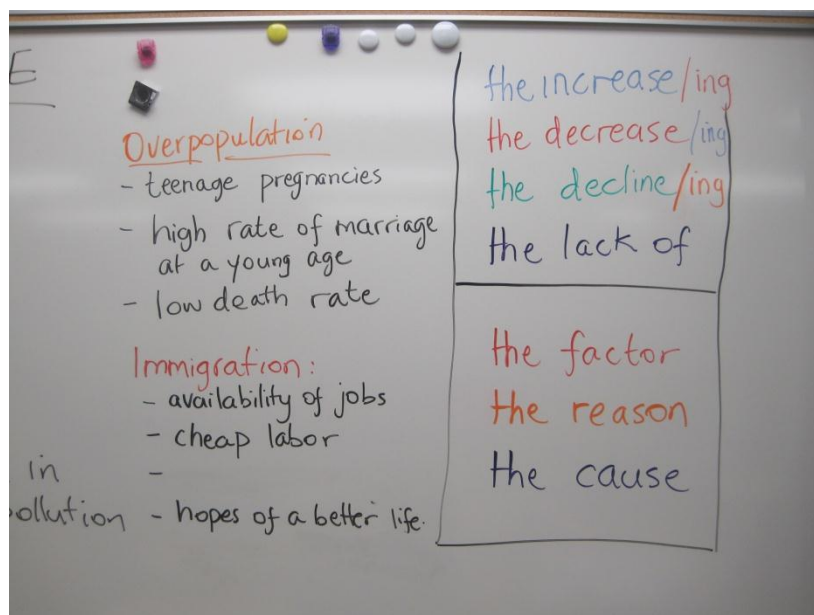 E
Overpopulation
- teenage pregnancies
- high rate of marriage
at a young age
- low death rate
Immigration:
- availability of jobs
- cheap labor
-
- hopes of a better life.
in
ollution
the increase/ing
the decrease/ing
the decline/ing
the lack of
the factor
the reason
the cause